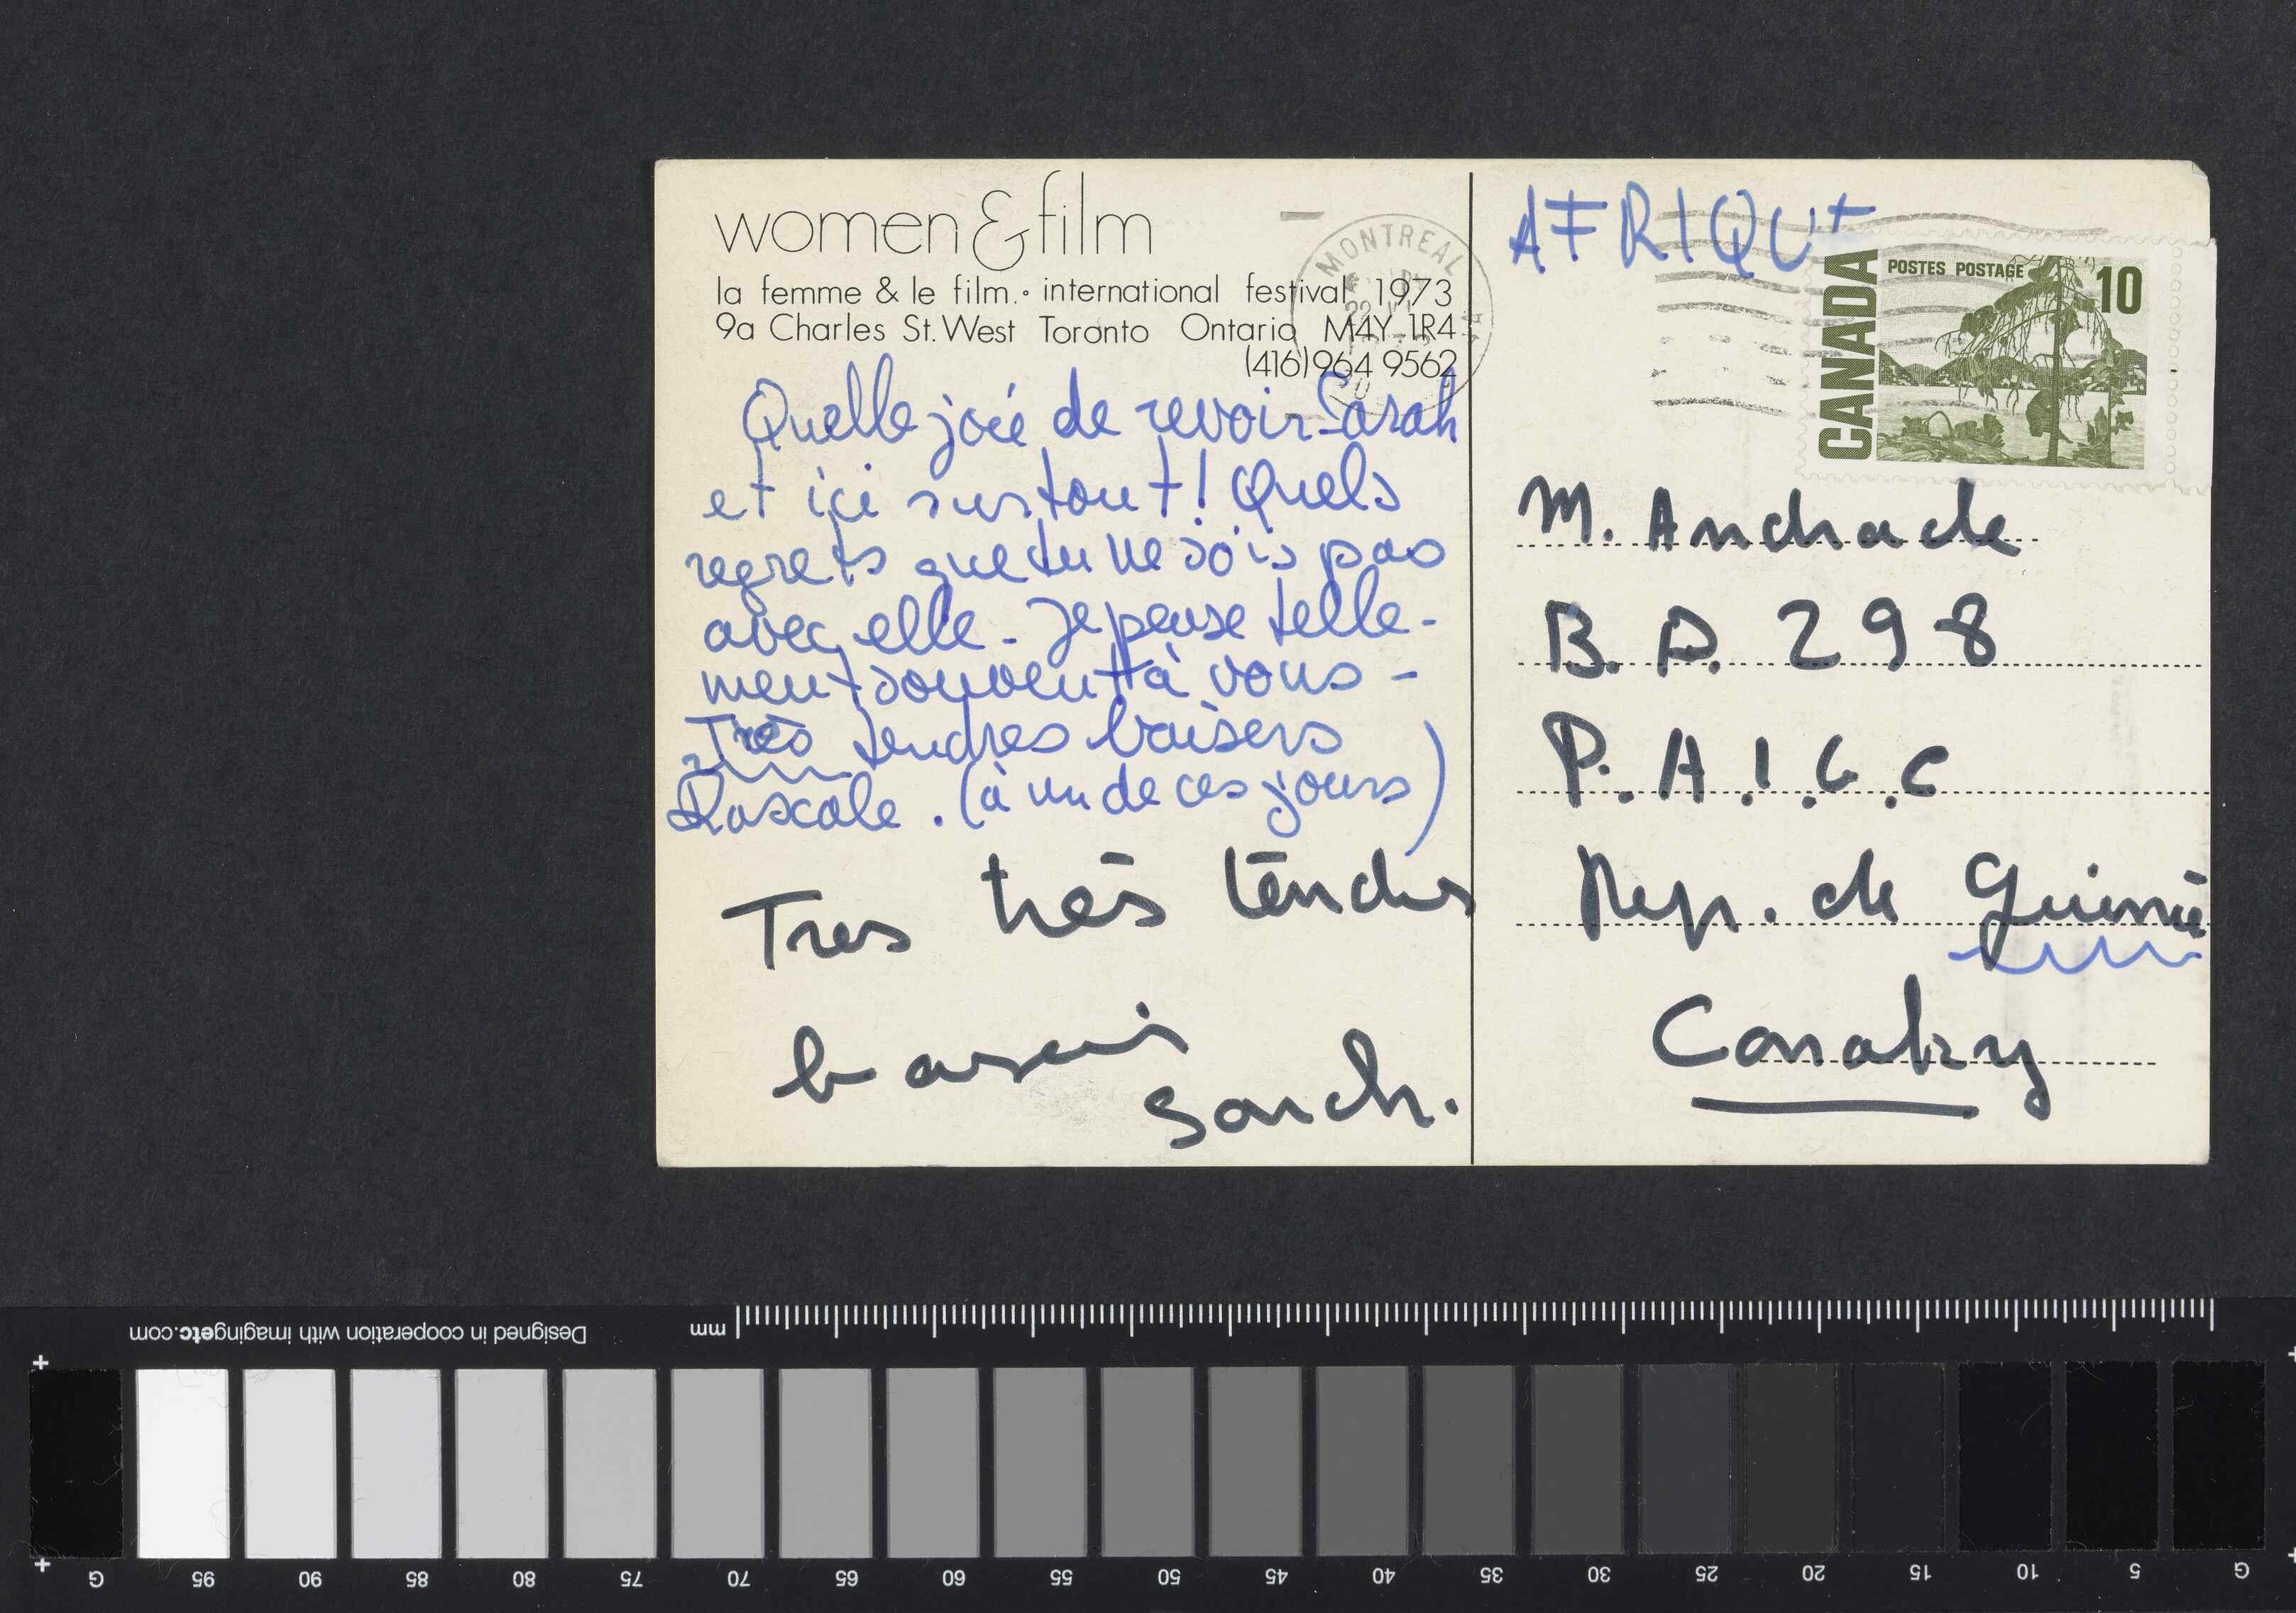 women & film
la femme & le film. • international festival 1973
9a Charles St. West Toronto Ontario M4Y 1R4
(416) 964 9562
MONTREAL
Quelle joie de revoir Sarah
et ici surtout! Quels
regrets que tu ne sois pas
avec elle - Je pense telle-
ment souvent à vous -
Très tendres baisers
Pascale. (à un de ces jours)
Tres très tendres
baisers
Sarah.
AFRIQUE
CANADA
POSTES POSTAGE 10
M. Andrade
B. P. 298
P. A. I. G. C
Rep. de Guinée
Conakry
Designed in cooperation with imagingetc.com
mm
G 95 90 85 80 75 70 65 60 55 50 45 40 35 30 25 20 15 10 5 G